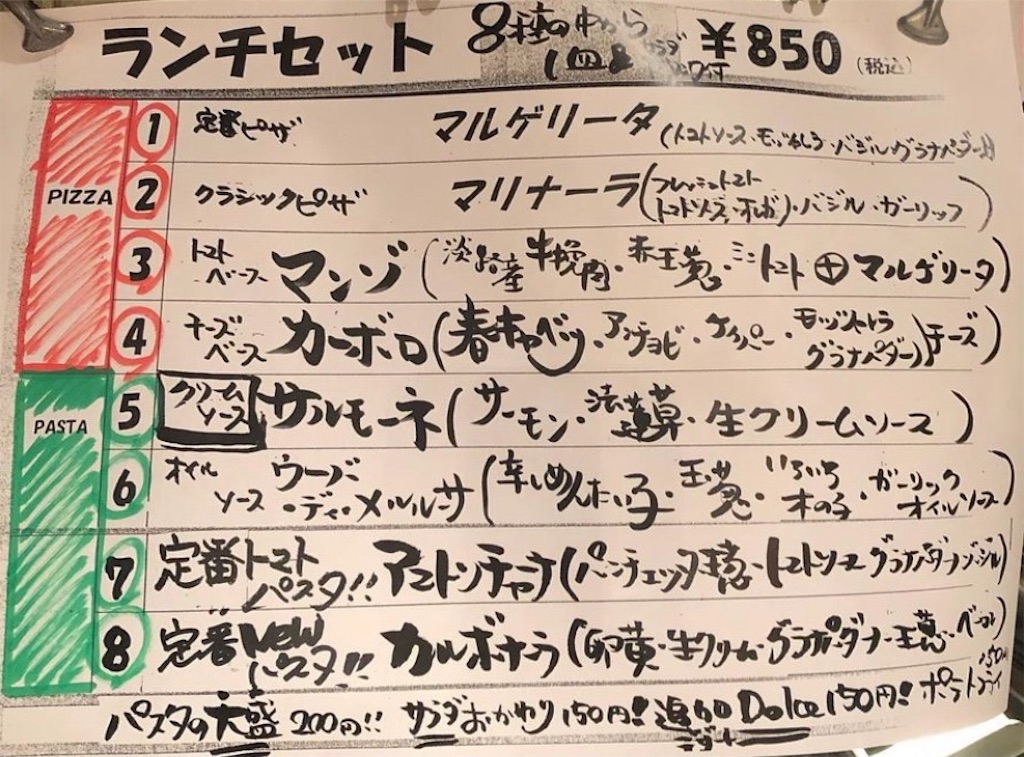 ランチセット 8種の中から1皿& サラダ 付 ¥850 (税込)
PIZZA
1 定番ピザ マルゲリータ (トマトソース・モッツァレラ・バジル・グラナパダーノ)
2 クラシックピザ マリナーラ (フレッシュトマト トマトソース・オレガノ・バジル・ガーリック)
3 トマトベース マンゾ (淡路産牛挽肉・赤玉葱・ミニトマト⊕マルゲリータ)
4 チーズベース カーボロ (春キャベツ・アンチョビ・ケイパー・モッツァレラ グラナパダーノ チーズ)
PASTA
5 クリームソース サルモーネ (サーモン・法蓮草・生クリームソース)
6 オイルソース ウーバ・ディ・メルルーサ (辛しめんたい子・玉葱・いろいろ木の子・ガーリックオイルソース)
7 定番トマトパスタ!! アマトリチャーナ (パンチェッタ・玉葱・トマトソース・グラナパダーノ・バジル)
8 定番NEWパスタ!! カルボナーラ (卵黄・生クリーム・グラナパダーノ・玉葱・ベーコン)
パスタの大盛200円!! サラダおかわり150円! 追加Dolce150円! ポテトフライ150円